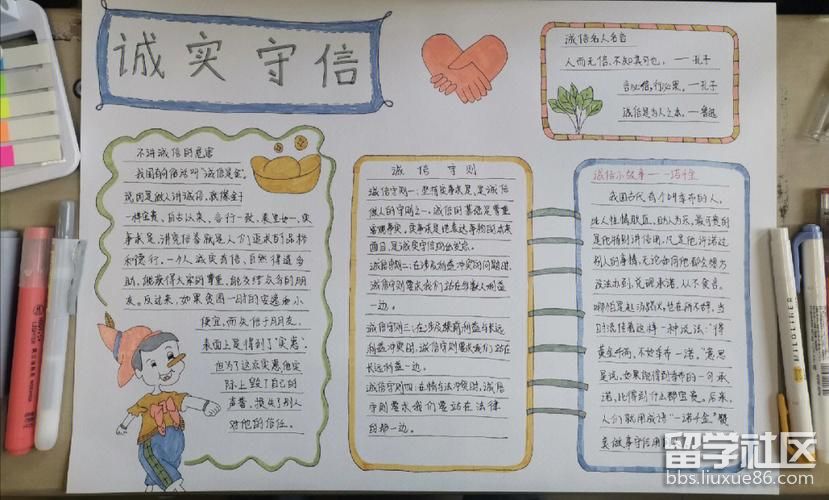 诚实守信
诚信名人名言
人而无信，不知其可也，——孔子
言必信，行必果。——孔子
诚信是为人之本。——鲁迅
不讲诚信的危害
我国有句俗话叫“诚信是金”，
说的是做人讲诚信，就像金子
一样宝贵，自古以来，言行一致，表里如一，实
事求是，讲究信誉就是人们追求的品格
和德行。一个人诚实有信，自然得道多
助，能获得大家的尊重，能交结众多的朋
友。反过来，如果贪图一时的安逸和小
便宜，而失信于朋友，
表面上是得到了“实惠”，
但为了这点实惠他实
际上毁了自己的
声誉，损失了别人
对他的信任。
诚信守则
诚信守则一：坚持实事求是，是诚信
做人的守则之一，诚信的基础是尊重
客观事实，实事求是地表达事物的本来
面目，是诚实守信的出发点。
诚信守则二：在涉及利益冲突的问题时，
诚信守则要求我们站在多数人利益
一边。
诚信守则三：在涉及眼前利益与长远
利益冲突时，诚信守则要求我们站在
长远利益一边。
诚信守则四：在情与法冲突时，诚信
守则要求我们要站在法律
的那一边。
诚信小故事——一诺千金
我国古代有个叫季布的人，
此人性情耿直，助人为乐，最可贵的
是他特别讲信用，凡是他许诺过
别人的事情，无论如何他都会想方
设法办到，兑现承诺，从不食言，
哪怕是赴汤蹈火，也在所不辞，当
时流传着这样一种说法“得
黄金千两，不如季布一诺。”意思
是说，如果能得到季布的一句承
诺，比得到什么都宝贵。后来，
人们就用成语“一诺千金”赞
美做事守信用
留学社区
bbs.liuxue86.com